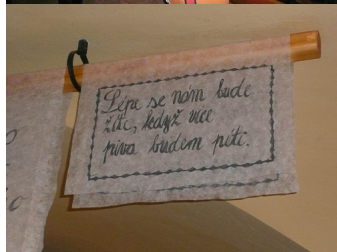 Lépe se nám bude
žíti, když více
piva budem píti.